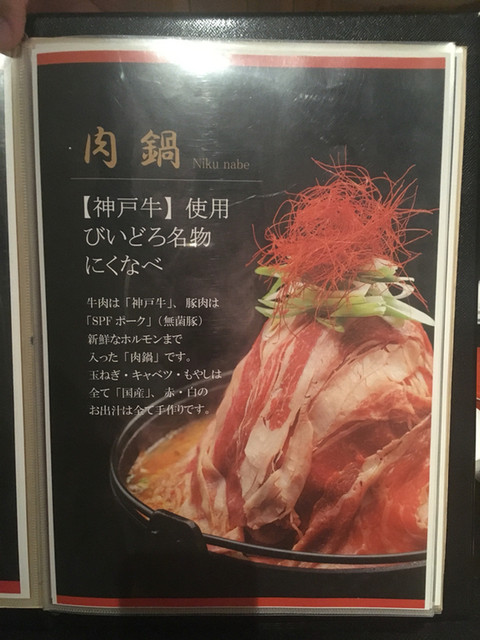 肉鍋 Niku nabe
【神戸牛】使用
びいどろ名物
にくなべ
牛肉は「神戸牛」、豚肉は
「SPFポーク」（無菌豚）
新鮮なホルモンまで
入った「肉鍋」です。
玉ねぎ・キャベツ・もやしは
全て「国産」、赤・白の
お出汁は全て手作りです。